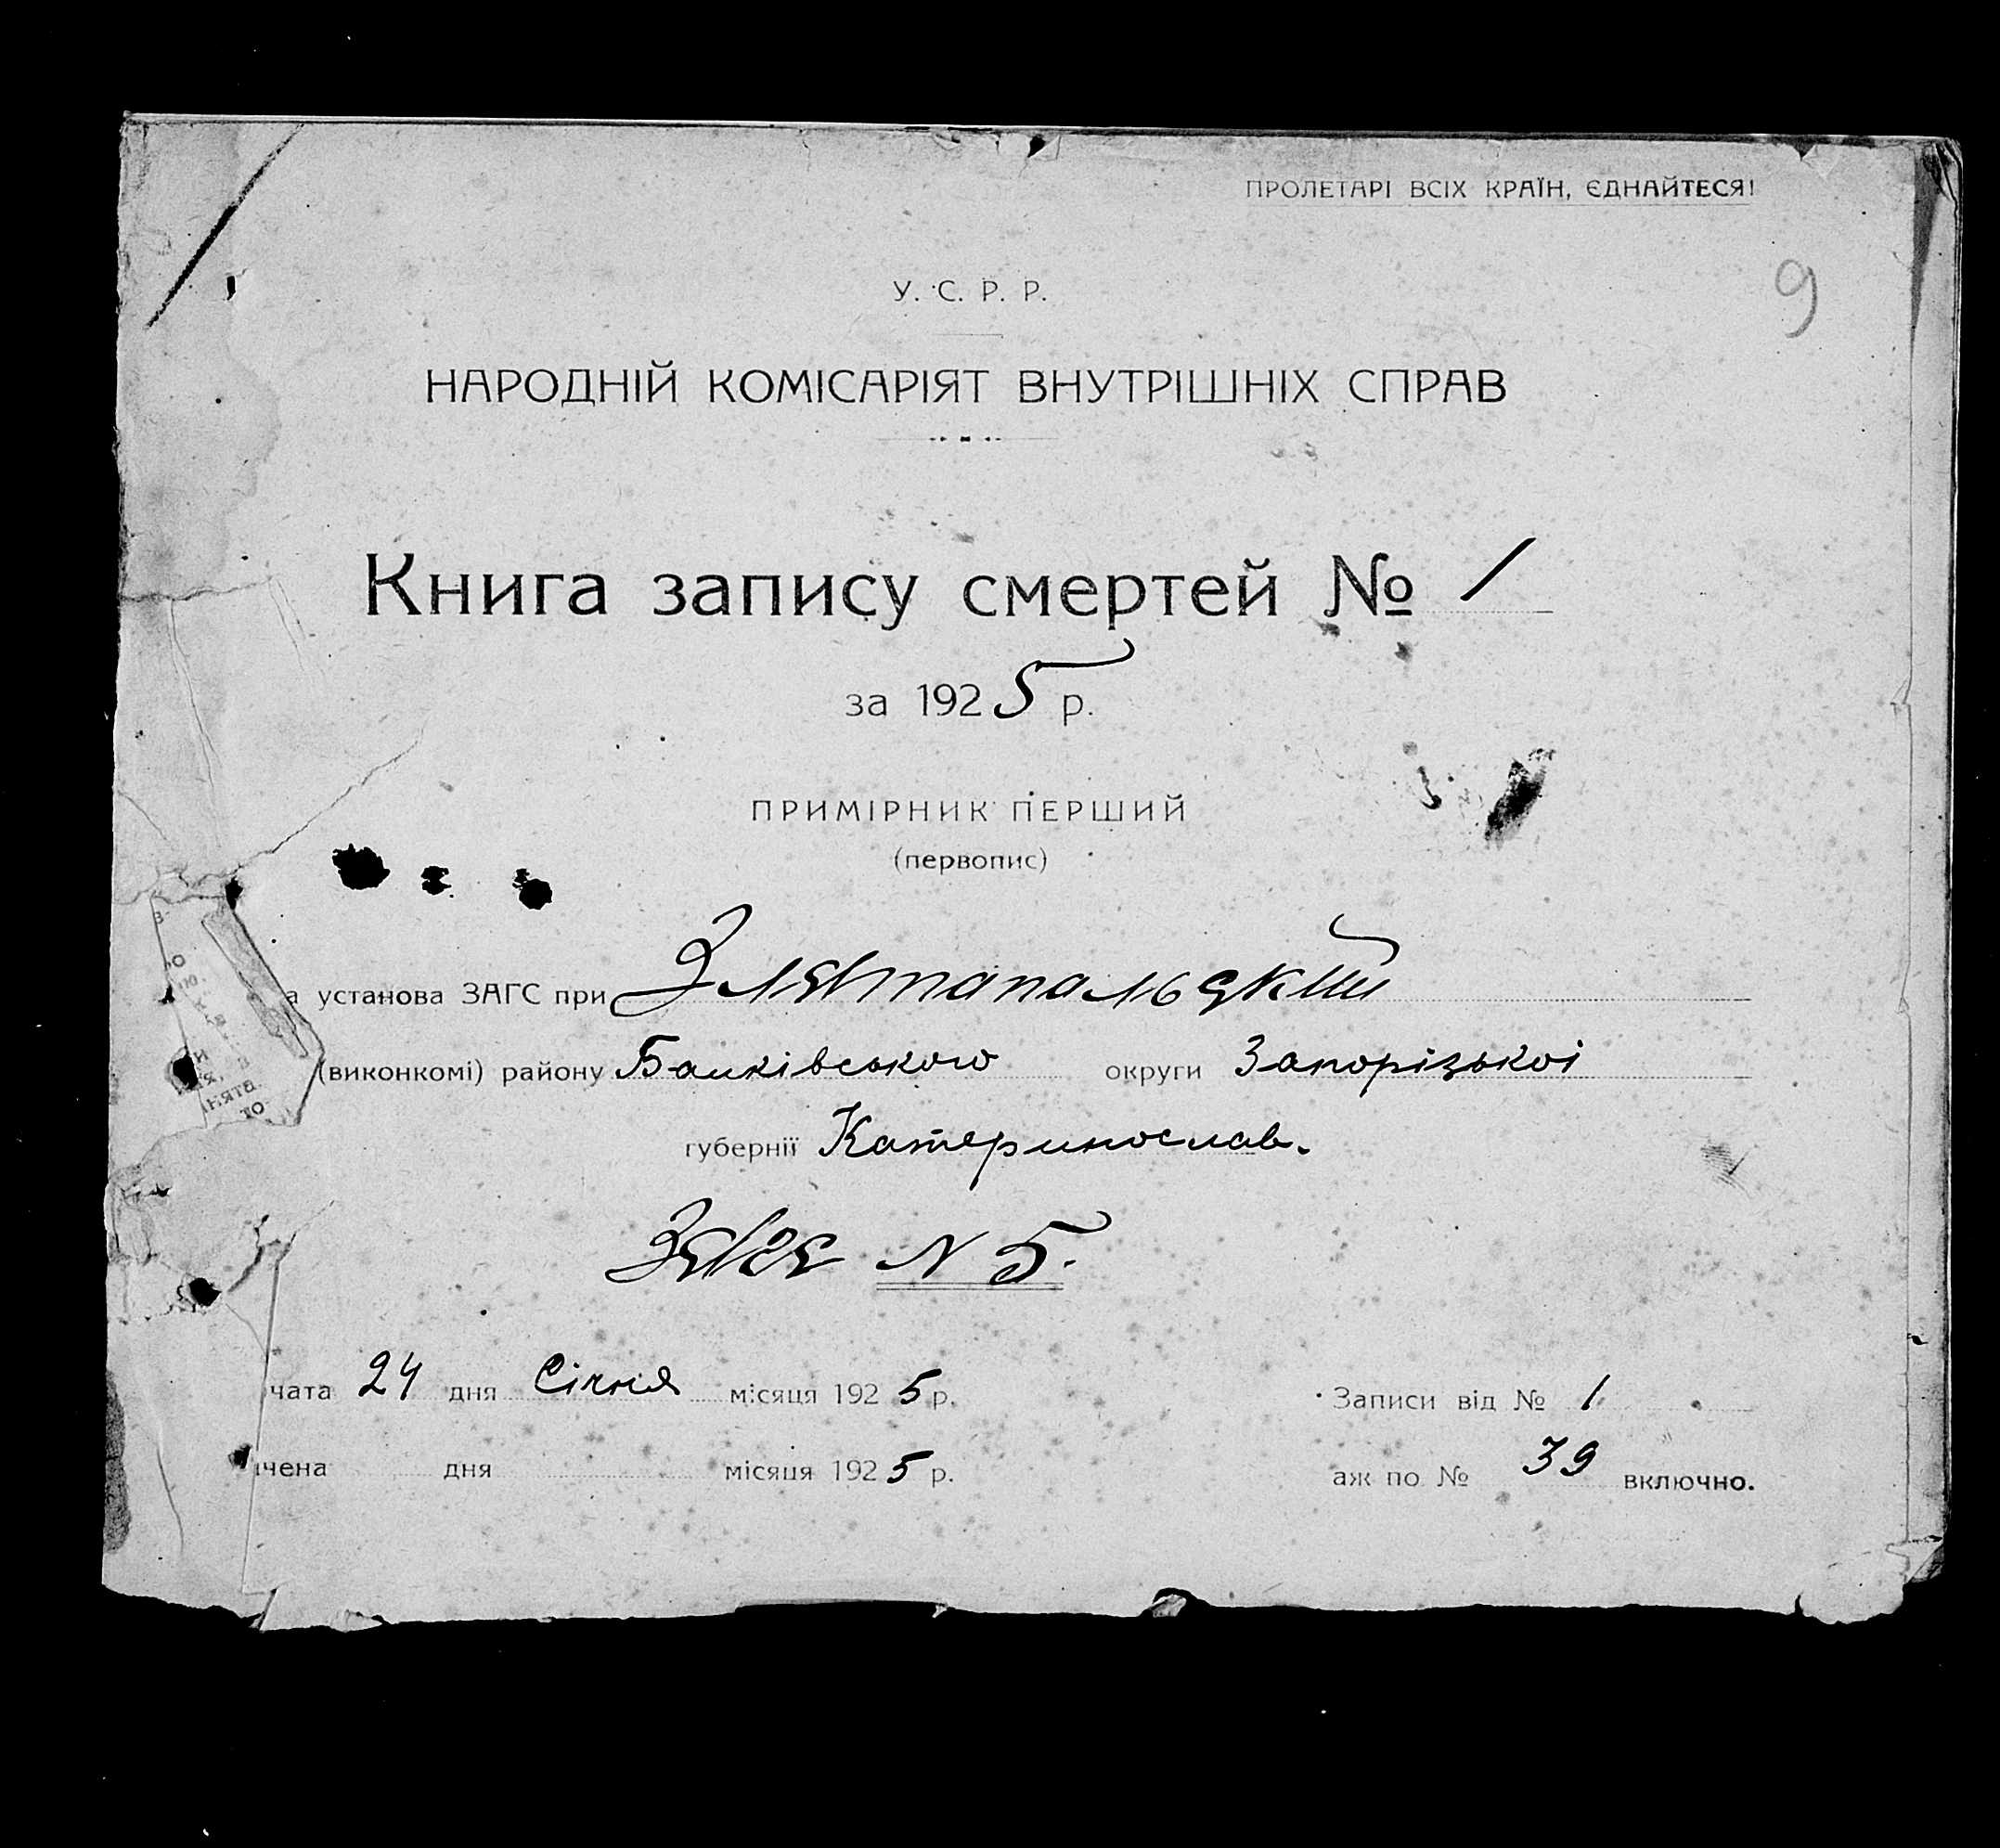 ПРОЛЕТАРІ ВСІХ КРАЇН, ЄДНАЙТЕСЯ!
9
У. С. Р. Р.
НАРОДНІЙ КОМІСАРІЯТ ВНУТРІШНІХ СПРАВ
Книга запису смертей № 1
за 1925 р.
ПРИМІРНИК ПЕРШИЙ
(первопис)
а установа ЗАГС при
(виконкомі) району Балківського округи Запорізькоі
губернії Катеринослав.
N 5.
чата 24 дня Січня місяця 1925 р.
Записи від № 1
чена дня місяця 1925 р.
аж по № 39 включно.